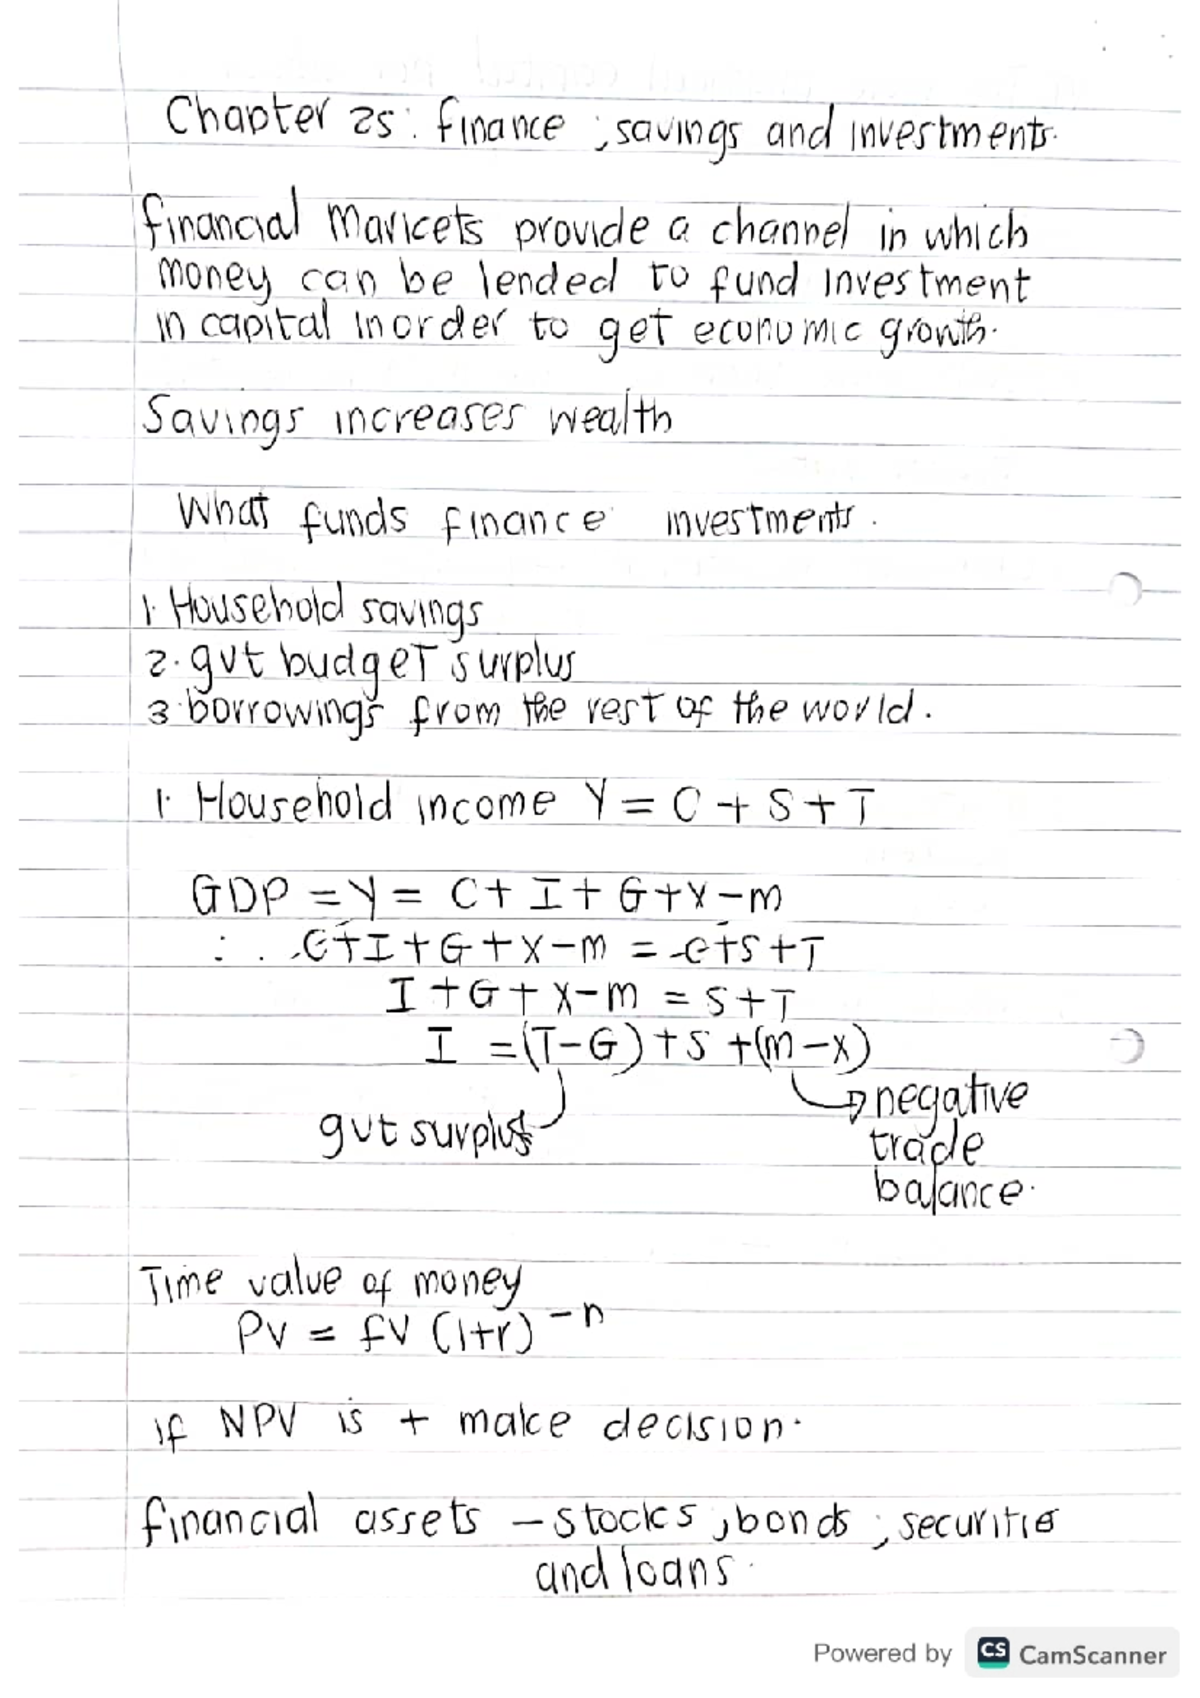 Chapter 25: finance ; savings and investments.
financial markets provide a channel in which
money can be lended to fund investment
in capital inorder to get economic growth.
Savings increases wealth
What funds finance investments.
1. Household savings
2. gvt budget surplus
3. borrowings from the rest of the world.
1. Household income Y = C + S + T
GDP = Y = C + I + G + X - m
∴ C + I + G + X - m = C + S + T
I + G + X - m = S + T
I = (T - G) + S + (m - x)
negative
gvt surplus
trade
balance.
Time value of money
PV = fV (1+r)^-n
if NPV is + make decision.
financial assets – stocks, bonds ; securities
and loans.
Powered by CS CamScanner